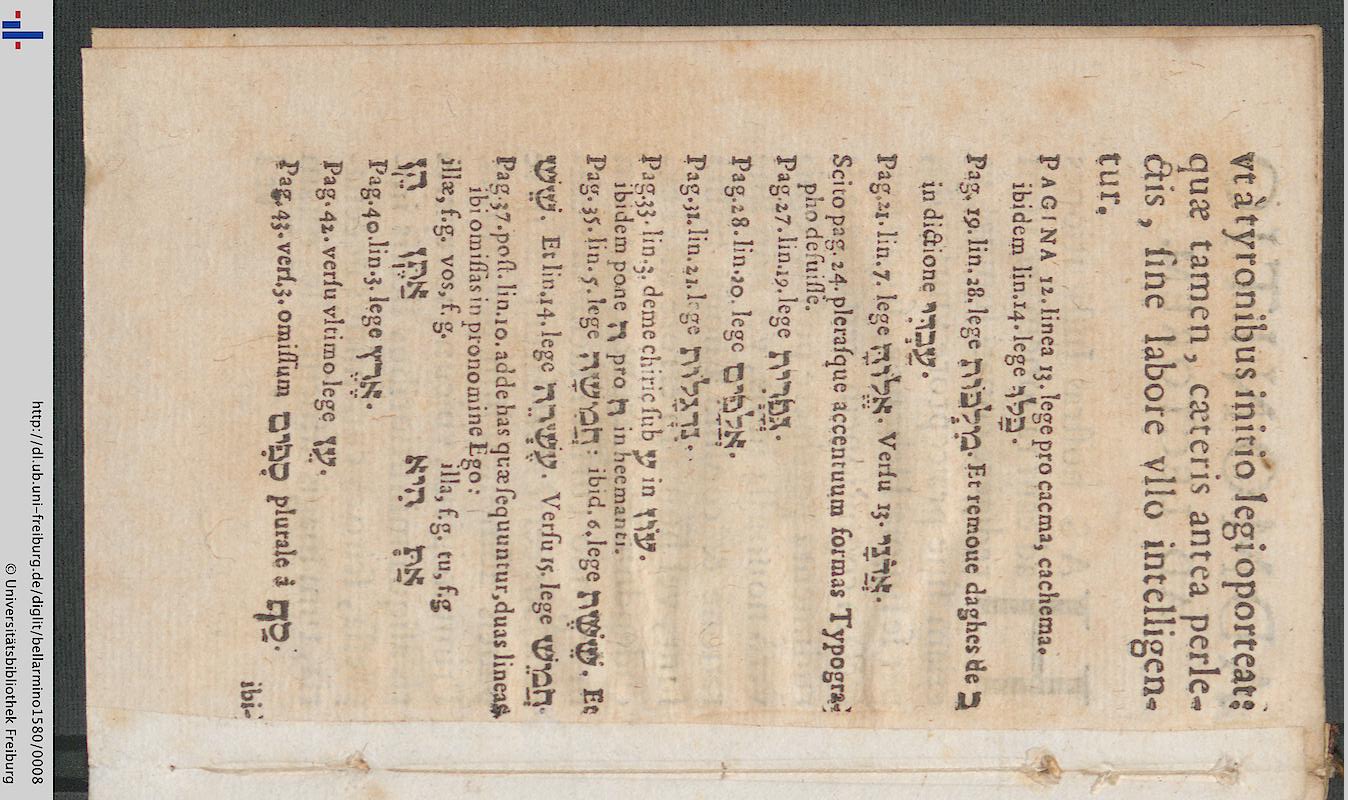 vt à tyronibus initio legi oporteat:
quæ tamen, cæteris antea perle-
ctis, sine labore vllo intelligen-
tur.
PAGINA 12. linea 13. lege pro cacma, cachema.
ibidem lin. 14. lege
Pag. 19. lin. 28. lege Et remoue daghes de ב
in dictione
Pag. 21. lin. 7. lege Versu 13. אֲדֹנָי.
Scito pag. 24. plerasque accentuum formas Typogra-
pho defuisse.
Pag. 27. lin. 19. lege
Pag. 28. lin. 20. lege
Pag. 31. lin. 21. lege
Pag. 33. lin. 3. deme chiric sub ע in
ibidem pone ה pro ח in heemanti.
Pag. 35. lin. 5. lege חֲמִשָּׁה : ibid. 6. lege שֵׁשֶׁת. Et
שֵׁשׁ. Et lin. 14. lege Versu 15. lege חֲמֵשׁ.
Pag. 37. post. lin. 10. adde has quæ sequuntur, duas lineas
ibi omissas in pronomine Ego:
illæ, f.g. vos, f.g. illa, f.g. tu, f.g
הֵן אַתֶּן הִיא אַתְּ
Pag. 40. lin. 3. lege אֶרֶץ.
Pag. 42. versu vltimo lege
Pag. 43. vers. 3. omissum סִפִּים plurale à סַף.
ibi-
http://dl.ub.uni-freiburg.de/diglit/bellarmino1580/0008
© Universitätsbibliothek Freiburg